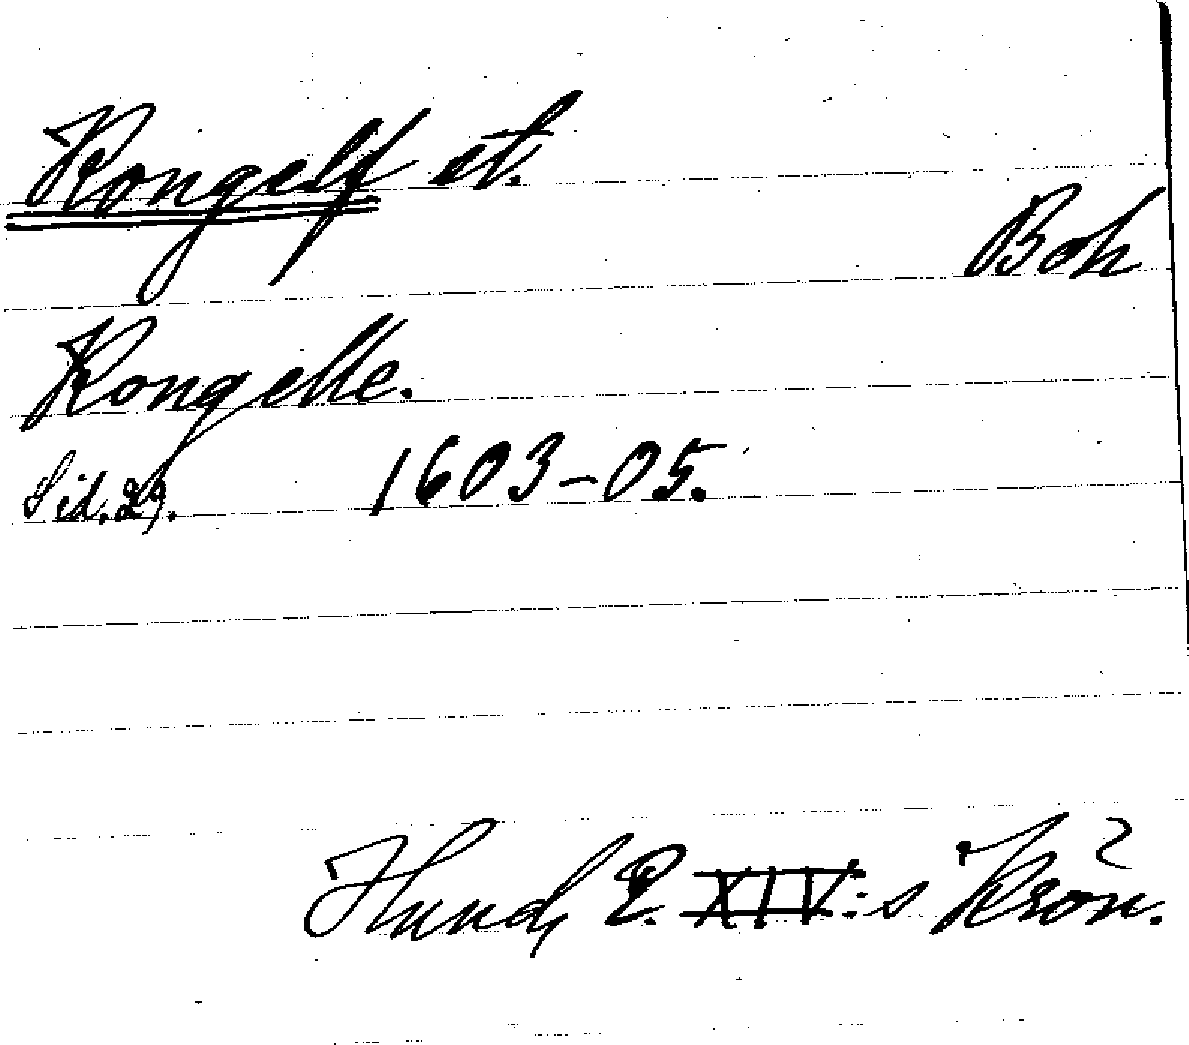 Kongelf st.
Boh
Kongelle.
Sid. 29. 1603-05.
Hund, E. XIV:s Krön.